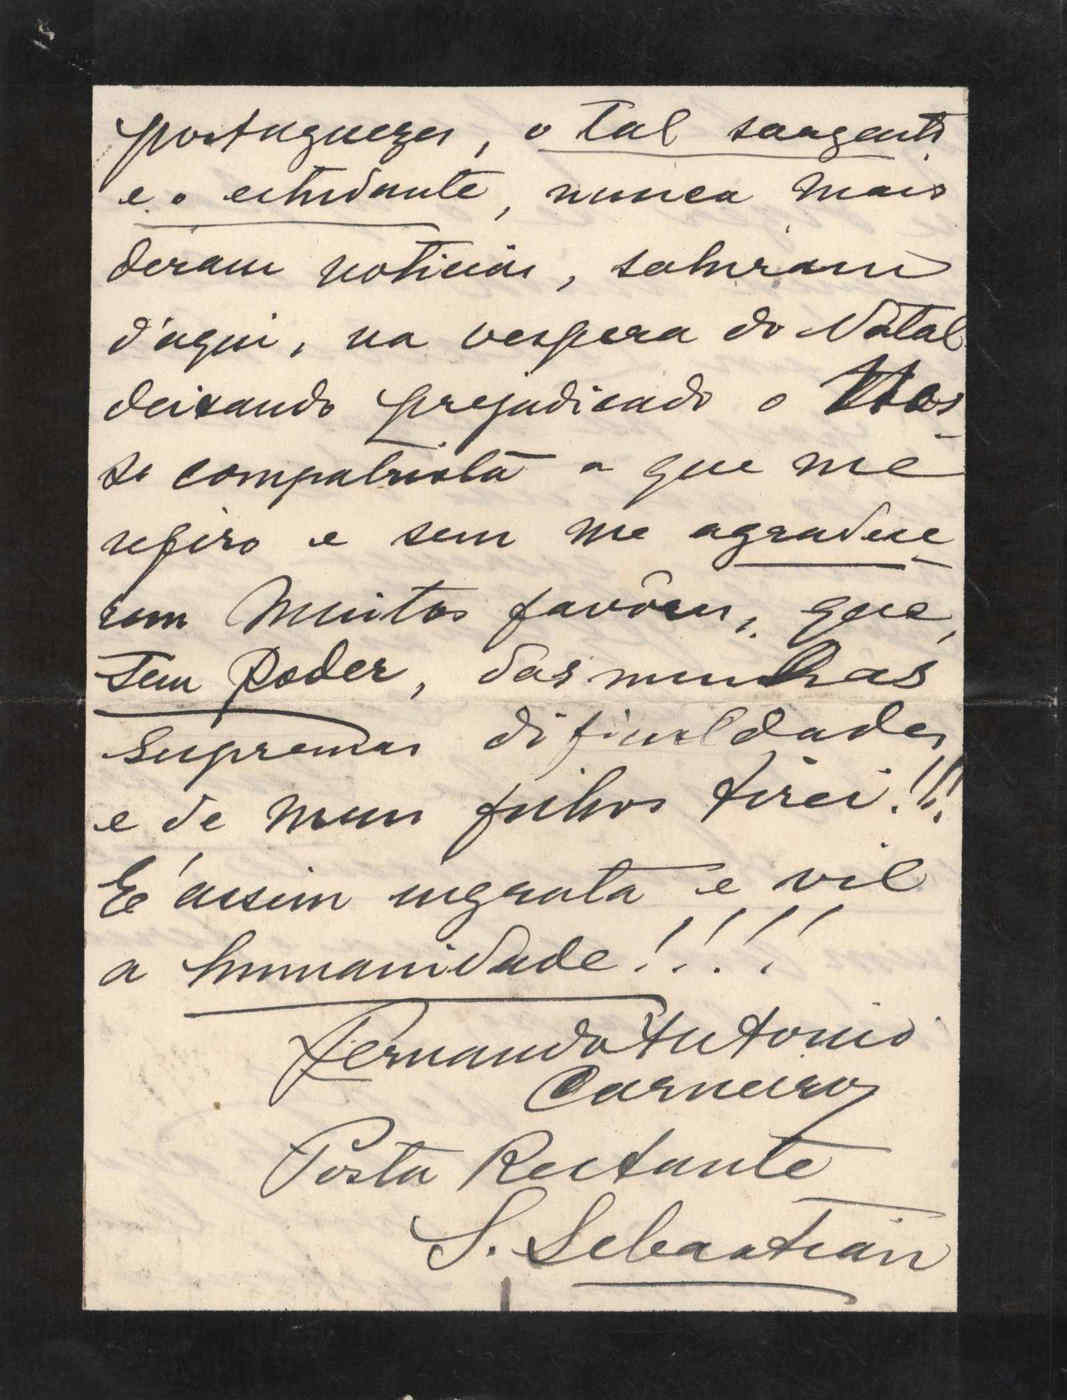 portuguezes, o tal sargento
e o estudante, nunca mais
deram noticias, sahiram
d'aqui, na vespera do Natal
deixando prejudicado o Nos-
so compatriota a que me
refiro e sem me agradece-
rem muitos favôres, que,
sem poder, das minhas
supremas dificuldades
e de meus filhos tirei!!!
E' assim ingrata e vil
a humanidade!!!!
Fernando Antonio
Carneiro
Posta Restante
S. Sebastian